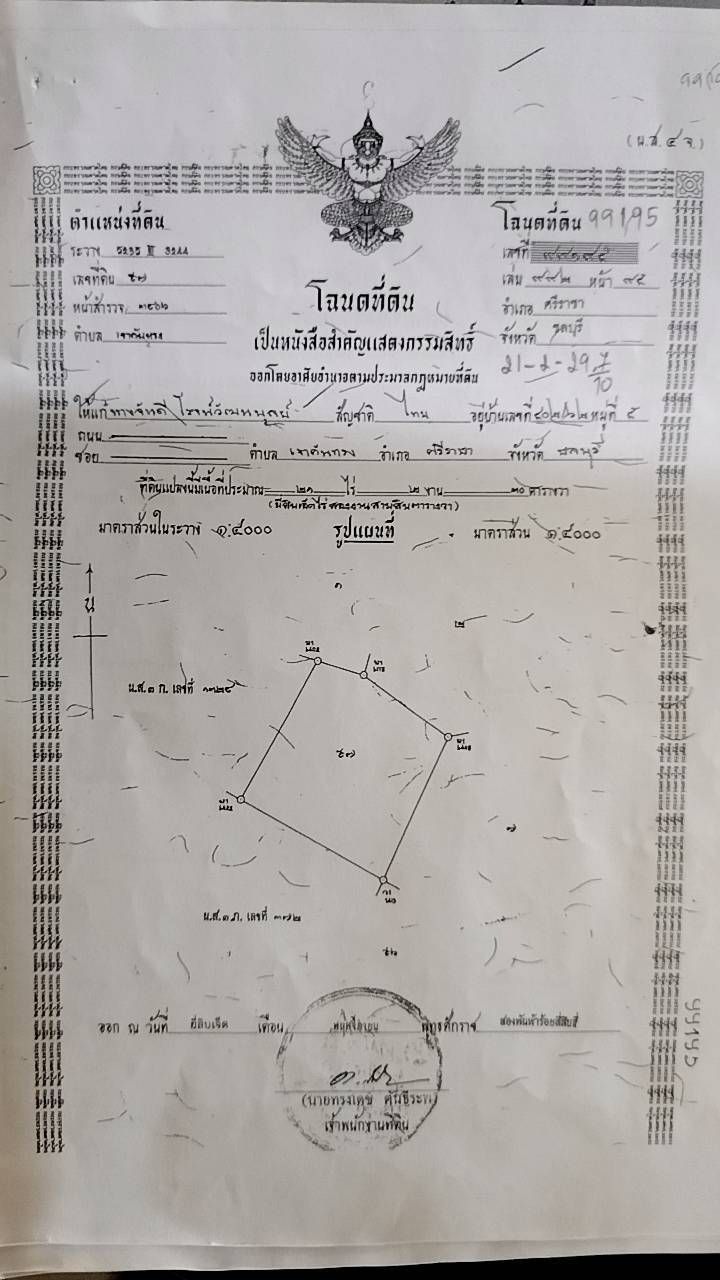 (น.ส. ๔ จ.)
ตำแหน่งที่ดิน
ระวาง 5235 III 3244
เลขที่ดิน ๕๗
หน้าสำรวจ ๓๕๖๒
ตำบล เขาคันทรง
โฉนดที่ดิน 99195
เลขที่ ๙๙๑๙๕
เล่ม ๙๙๒ หน้า ๙๕
อำเภอ ศรีราชา
จังหวัด ชลบุรี
21-2-29.7
10
โฉนดที่ดิน
เป็นหนังสือสำคัญแสดงกรรมสิทธิ์
ออกโดยอาศัยอำนาจตามประมวลกฎหมายที่ดิน
ให้แก่ สัญชาติ ไทย อยู่บ้านเลขที่ หมู่ที่ ๕
ถนน
ซอย ตำบล เขาคันทรง อำเภอ ศรีราชา จังหวัด ชลบุรี
ที่ดินแปลงนี้มีเนื้อที่ประมาณ ๒๑ ไร่ ๒ งาน ๓๐ ตารางวา
(ยี่สิบเอ็ดไร่สองงานสามสิบตารางวา)
มาตราส่วนในระวาง ๑:๔๐๐๐ รูปแผนที่ มาตราส่วน ๑:๔๐๐๐
น
๑
๒
น.ส.๓ ก. เลขที่ ๑๓๒๕
๕๗
๗
น.ส.๓ ก. เลขที่ ๓๗๒
๕๖
ออก ณ วันที่ ยี่สิบเจ็ด เดือน พฤศจิกายน พุทธศักราช สองพันห้าร้อยสี่สิบสี่
เจ้าพนักงานที่ดิน